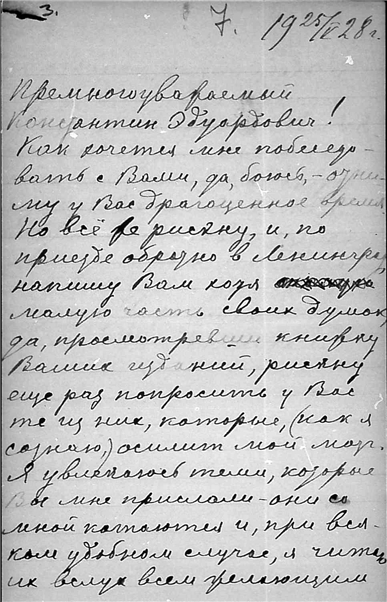 3.
7. 19 25/V 28 г.
Премногоуважаемый
Константин Эдуардович!
Как хочется мне побеседо-
вать с Вами, да, боюсь, – отни-
му у Вас драгоценное время
Но всё же рискну, и, по
приезде обратно в Ленинград
напишу Вам хотя
малую часть своих думок
да, просмотревши книжку
Ваших изданий, рискну
еще раз попросить у Вас
те из них, которые, (как я
сознаю,) осилит мой мозг.
Я увлекаюсь теми, которые
Вы мне прислали – они со
мной катаются и, при вся-
ком удобном случае, я читаю
их вслух всем желающим